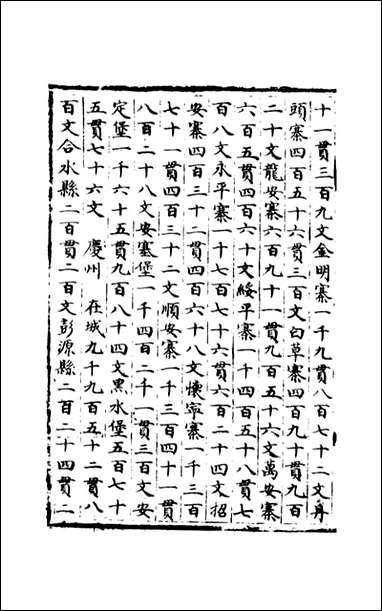 十一貫三百九文金明寨一千九貫八百七十二文丹
頭寨四百五十六貫三百文白草寨四百九十貫九百
二十文龍安寨六百九十一貫九百五十六文萬安寨
六百五貫四百六十文綏平寨一千四百五十八貫七
百八文永平寨一十七百七十六貫六百二十四文招
安寨四百三十二貫四百六十八文懷寧寨一千三百
七十一貫四百三十二文順安寨一千三百四十一貫
八百二十八文安塞堡一千四百二千一貫三百文安
定堡一千六十五貫九百八十四文黑水堡五百七十
五貫七十六文 慶州 在城九千九百五十二貫八
百文合水縣二百貫二百文彭源縣二百二十四貫二